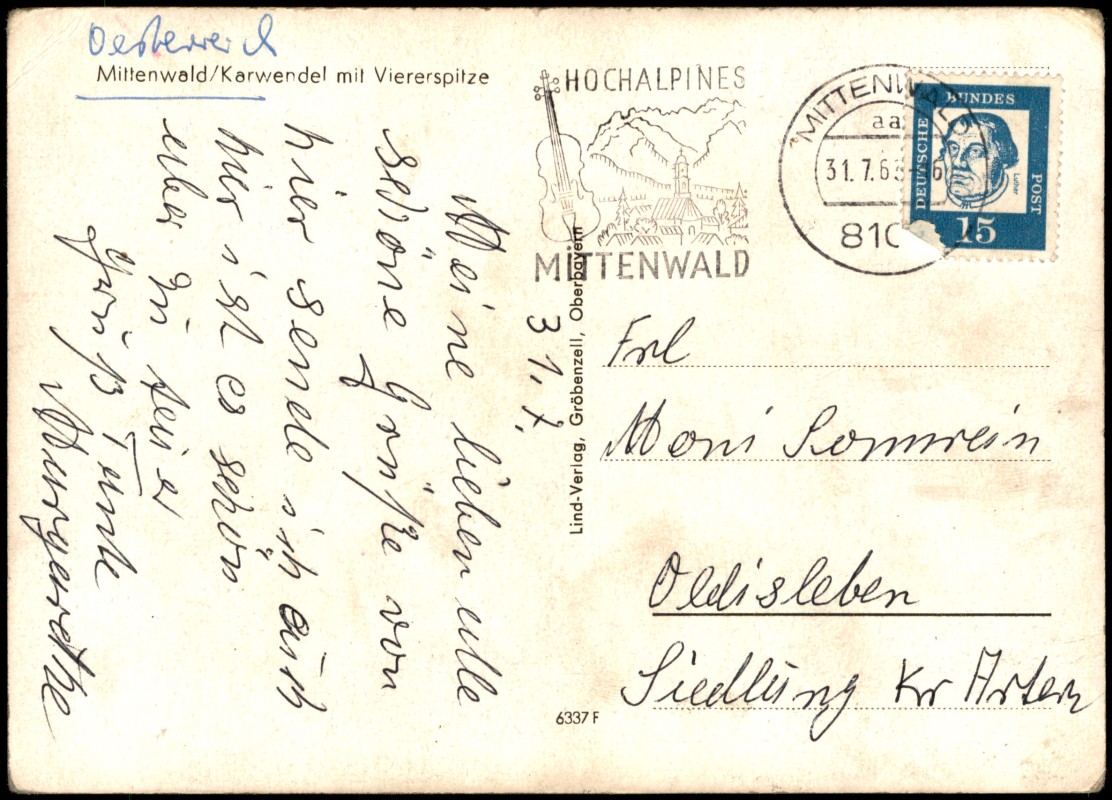 Oesterreich
Mittenwald/Karwendel mit Viererspitze
HOCHALPINES
MITTENWALD
MITTENWALD
aa
31.7.63-16
810
DEUTSCHE
BUNDES
POST
Luther
15
31.7.
Meine lieben alle
schöne Grüße von
hier sende ich euch
hier ist es schön
aber zu teuer
Gruß Tante
Margarethe
Lind-Verlag, Gröbenzell, Oberbayern
6337 F
Frl
Moni Sonnrein
Oldisleben
Siedlung Kr Artern